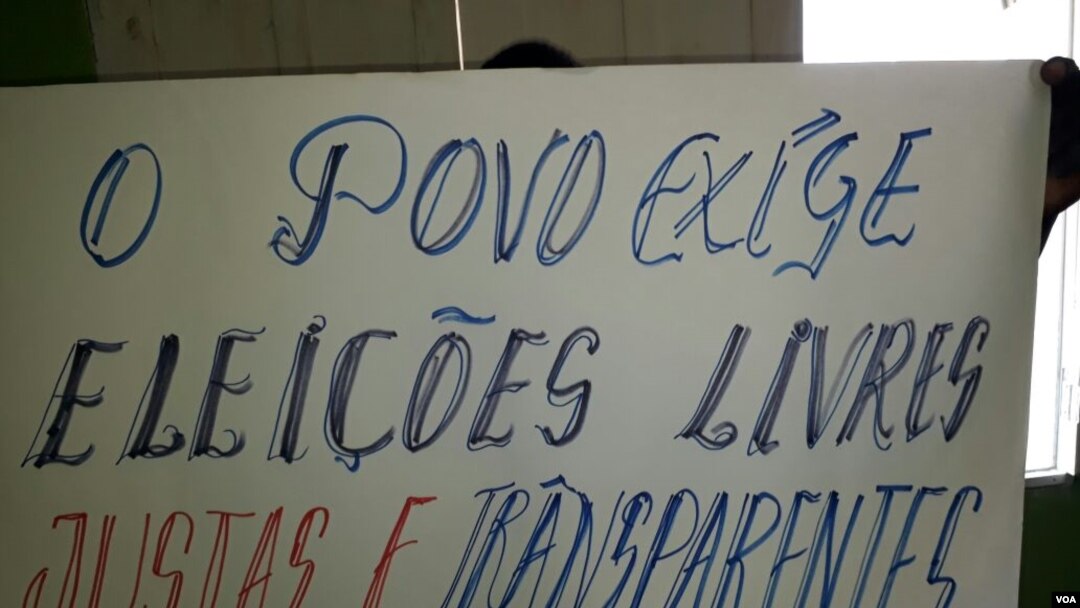 O POVO EXÍGE
ELEIÇÕES LIVRES
JUSTAS E TRÂNSPARENTES
VOA